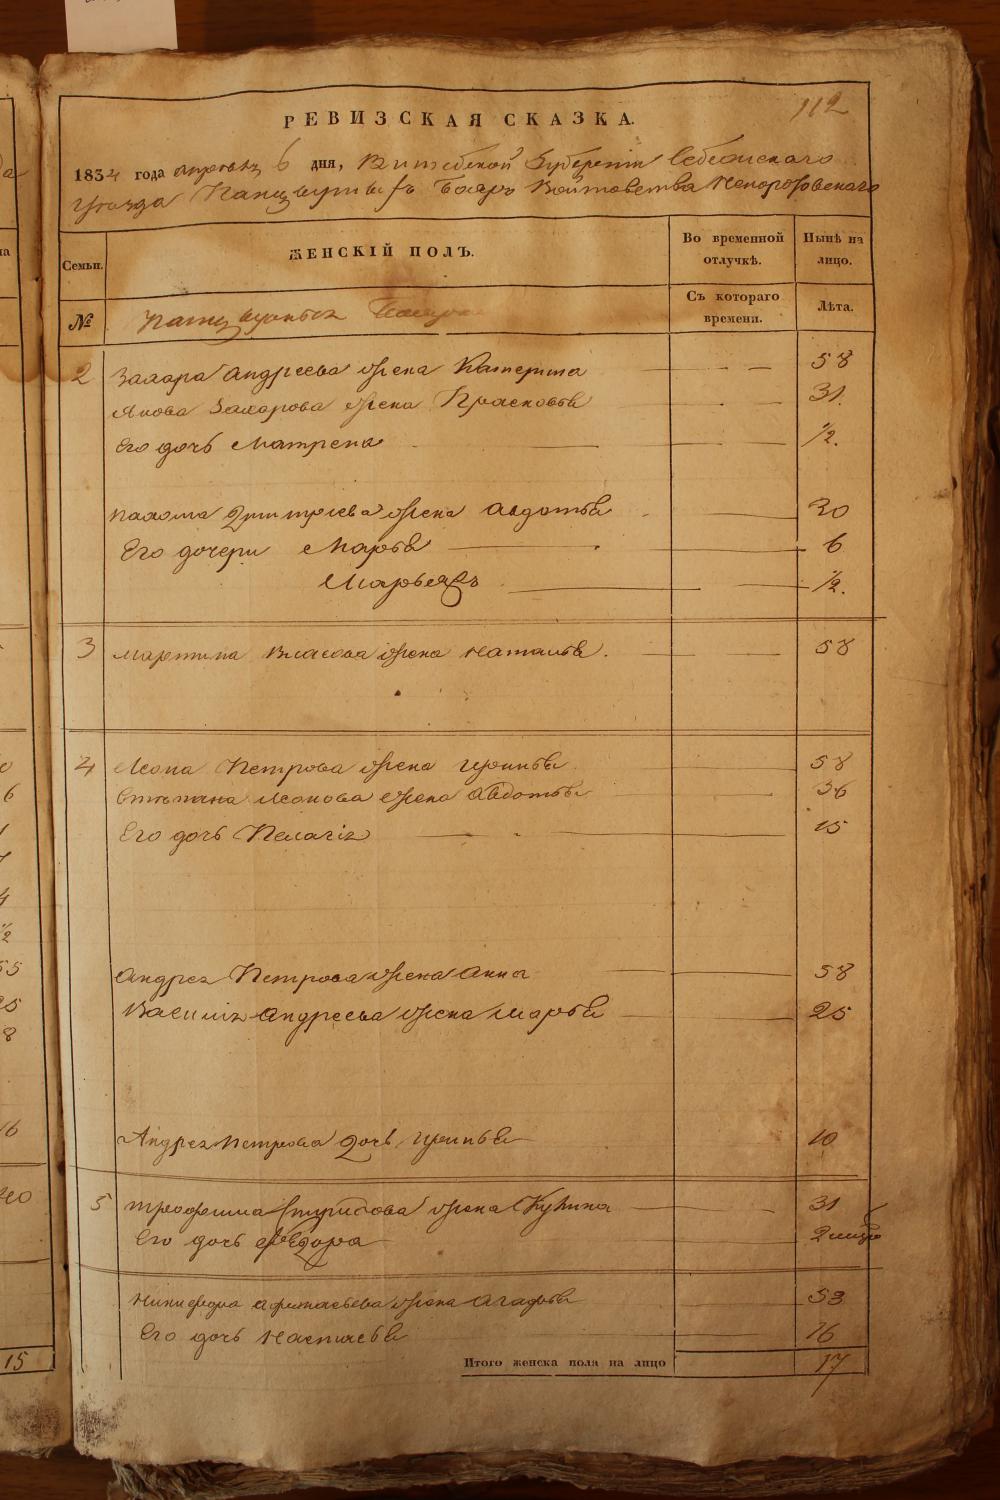 112
РЕВИЗСКАЯ СКАЗКА.
1834 года апреля 6 дня, Витебской Губернии Себежскаго
уезда Панцырныхъ Бояръ Войтовства Непоротовскаго
Семьи. ЖЕНСКІЙ ПОЛЪ. Во временной отлучкѣ. Нынѣ на лицо.
№ Панцырныя Съ котораго времени. Лѣта.
2 Захара Андреева жена Катерина 58
Якова Захарова жена Прасковья 31.
Его дочь Матрена 1/2.
Пахома Дмитрiева жена Авдотья 30
Его дочери Марья 6
1/2.
3 Мартина Власова жена Наталья. 58
4 Леона Петрова жена Иринья 58
Степана Леонова жена Авдотья 36
Его дочь Пелагiя 15
Андрея Петрова жена Анна 58
Василiя Андреева жена Марья 25
Андрея Петрова дочь Иринья 10
5 Трофима жена 31
Его дочь Федора 2
Никифора Афанасьева жена Агафья 53
Его дочь Настасья 16
Итого женска пола на лицо 17
15